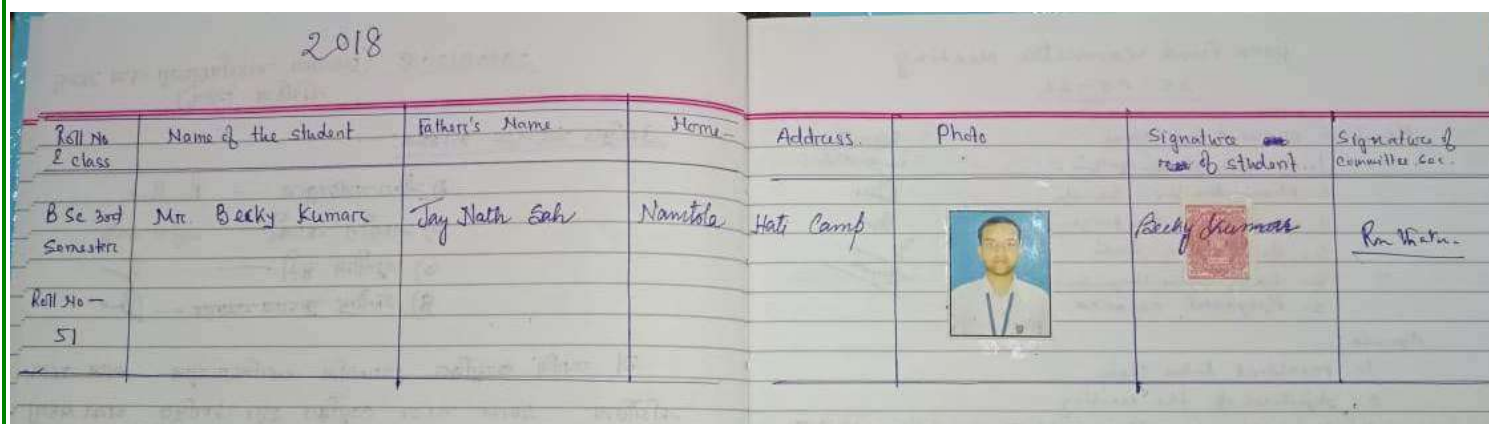 2018
Roll No & class
Name of the student
Father's Name
Home-
Address.
Photo
Signature of student
Signature of committee sec.
B Sc 3rd Semester
Roll No - 51
Mr Becky Kumar
Jay Nath Sah
Namtola
Hati Camp
Becky Kumar